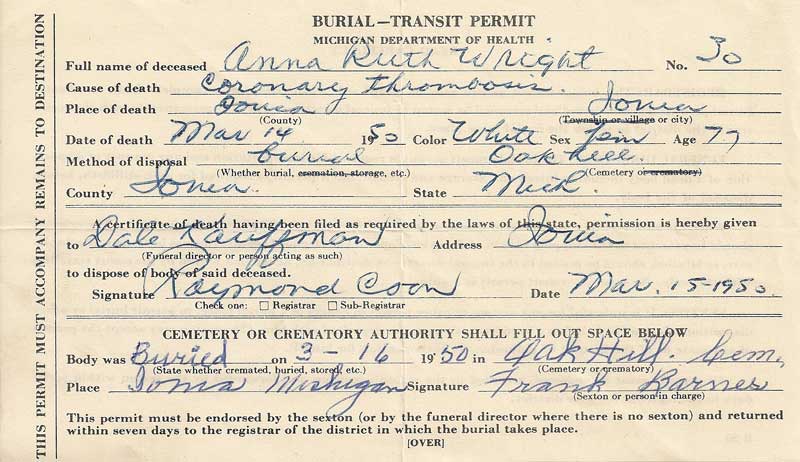 BURIAL—TRANSIT PERMIT
MICHIGAN DEPARTMENT OF HEALTH
Full name of deceased Anna Ruth Wright No. 30
Cause of death Coronary thrombosis.
Place of death Ionia Ionia
(County) (Township or village or city)
Date of death Mar 14 1950 Color White Sex Fem Age 77
Method of disposal burial Oak hill.
(Whether burial, cremation, storage, etc.) (Cemetery or crematory)
County Ionia. State Mich.
A certificate of death having been filed as required by the laws of this state, permission is hereby given
to Dale Kauffman Address Ionia
(Funeral director or person acting as such)
to dispose of body of said deceased.
Signature Raymond Coon Date Mar. 15-1950
Check one: Registrar Sub-Registrar
CEMETERY OR CREMATORY AUTHORITY SHALL FILL OUT SPACE BELOW
Body was Buried on 3-16 1950 in Oak Hill. Cem.
(State whether cremated, buried, stored, etc.) (Cemetery or crematory)
Place Ionia Michigan Signature Frank Barnes
(Sexton or person in charge)
This permit must be endorsed by the sexton (or by the funeral director where there is no sexton) and returned
within seven days to the registrar of the district in which the burial takes place.
[OVER]
THIS PERMIT MUST ACCOMPANY REMAINS TO DESTINATION